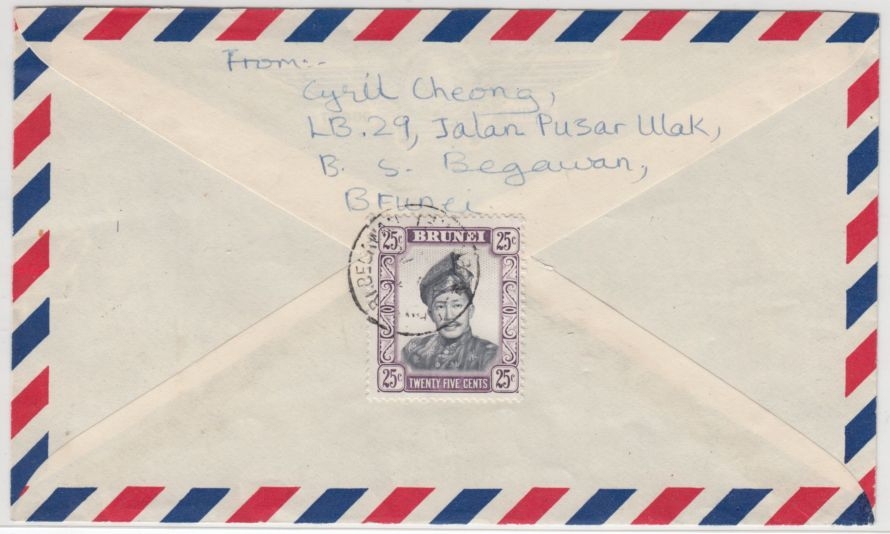 From:-
Cyril Cheong,
LB.29, Jalan Pusar Ulak,
B. S. Begawan,
Brunei.
25c BRUNEI 25c
25c TWENTY FIVE CENTS 25c